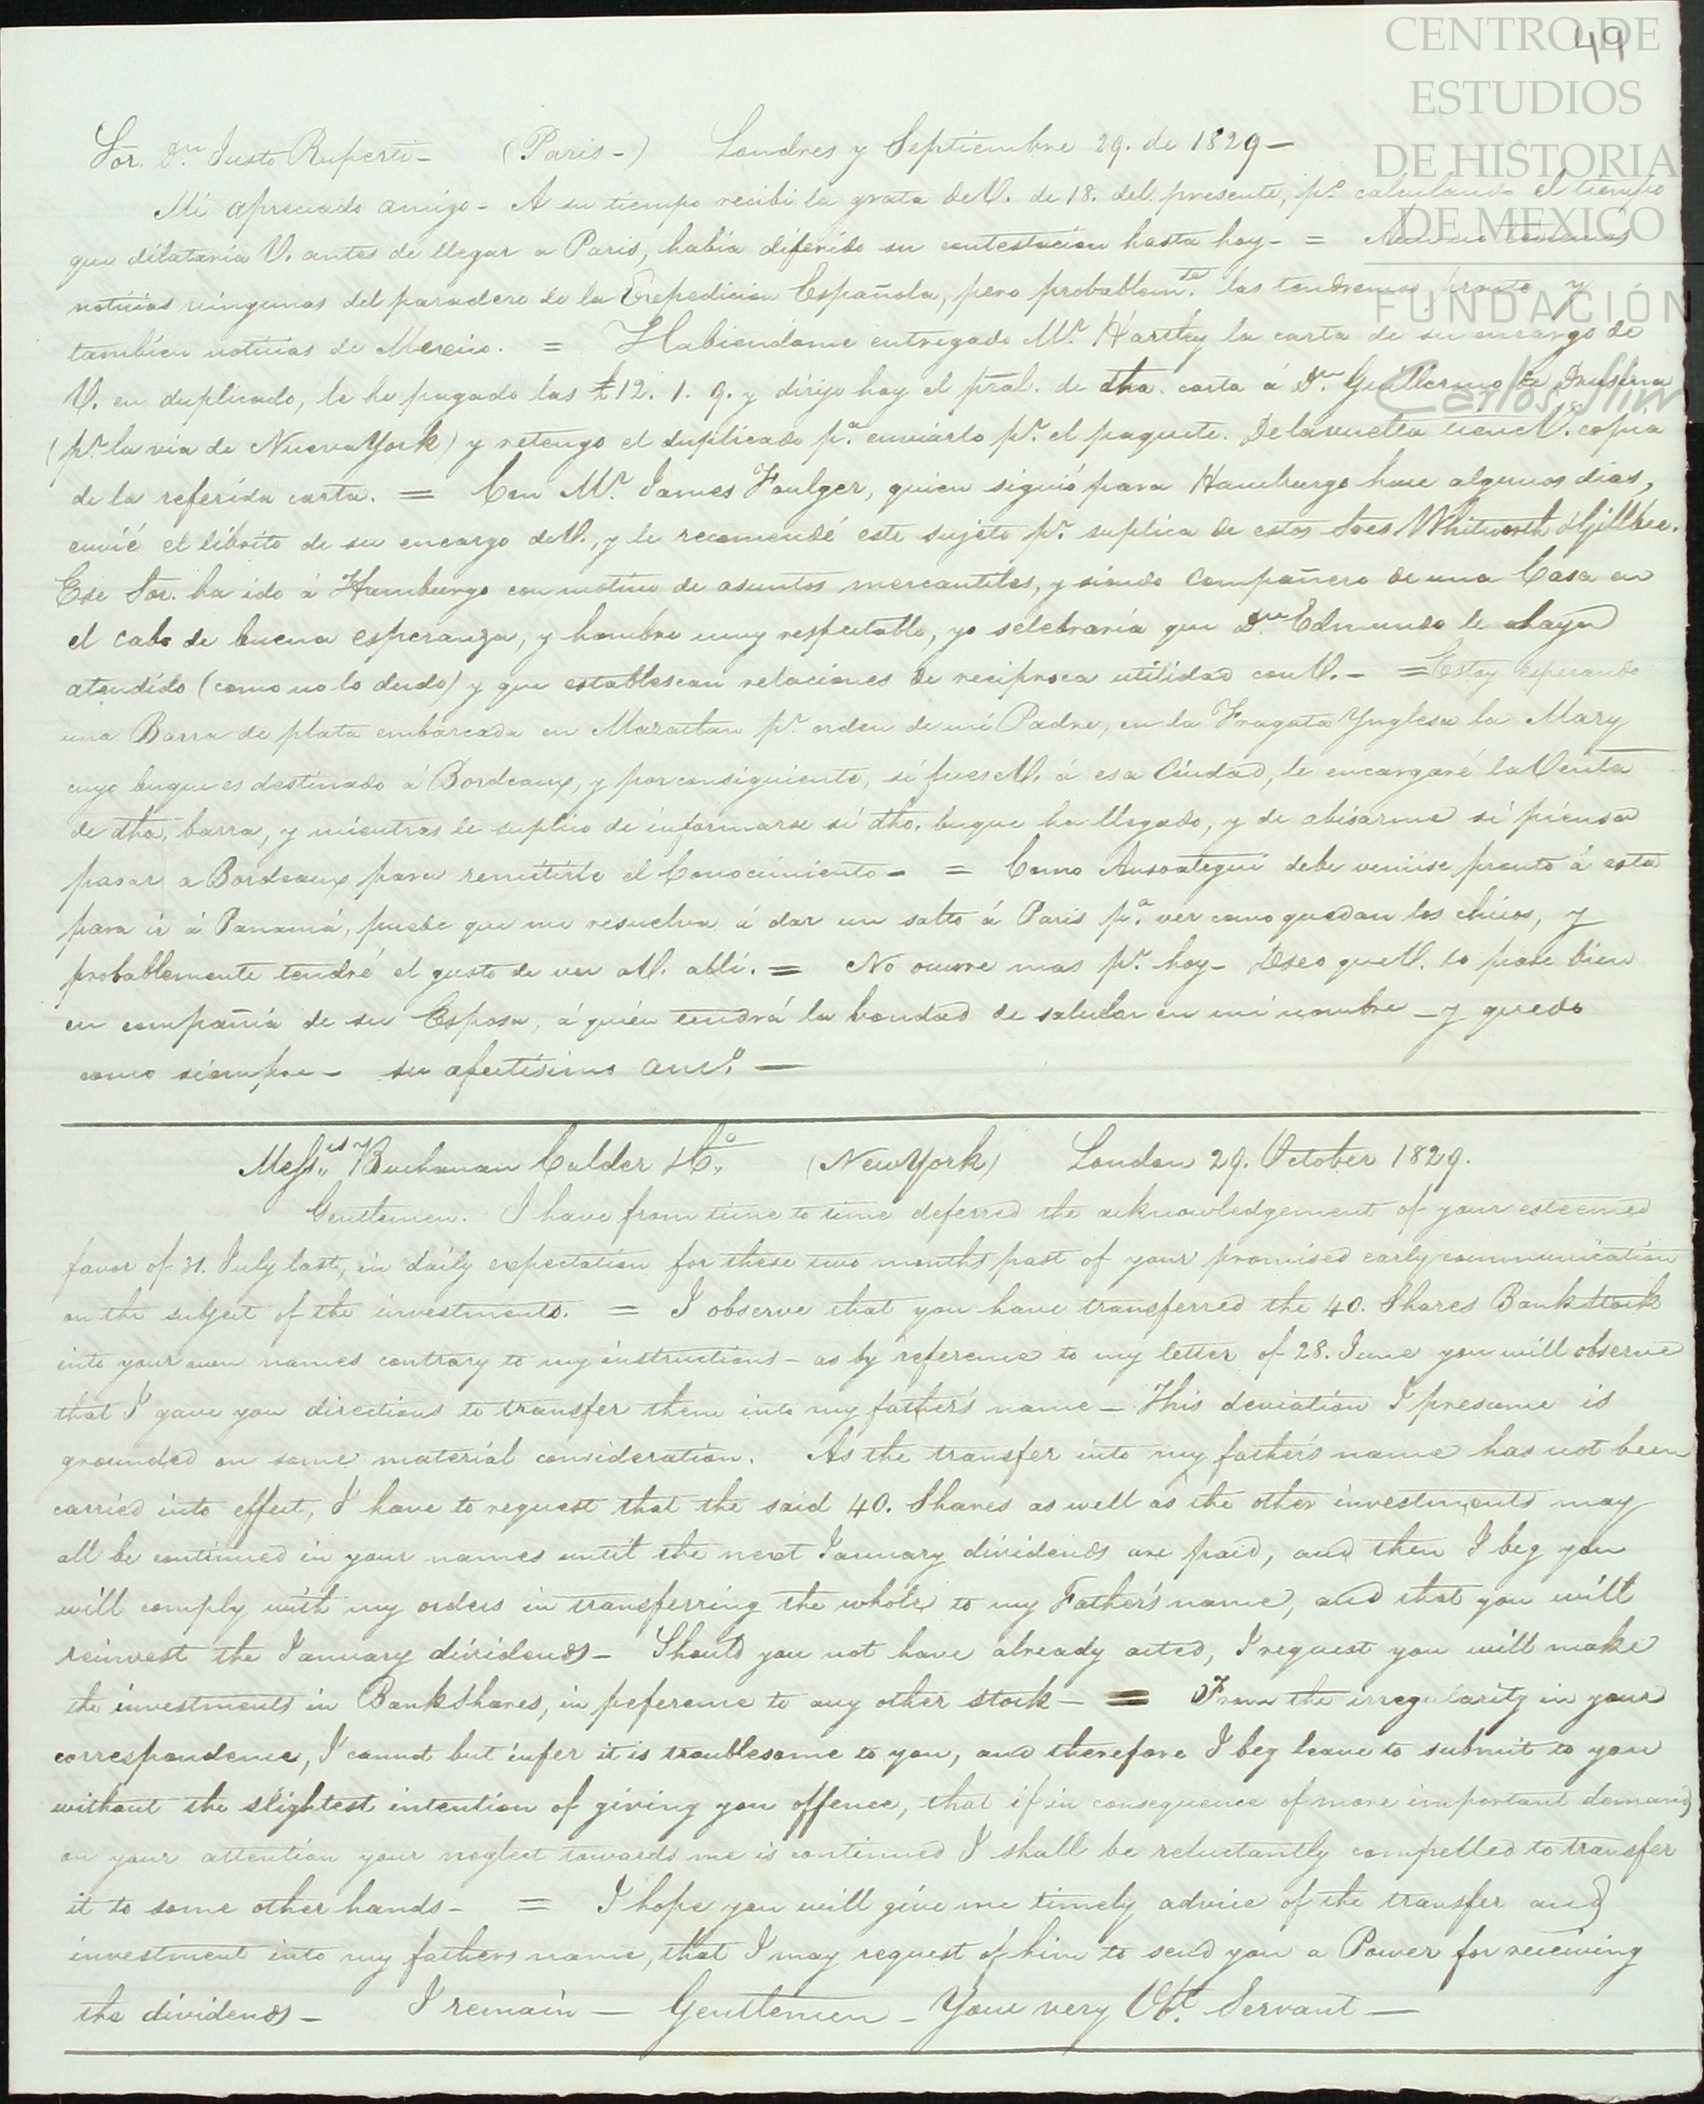 CENTRO DE
ESTUDIOS
DE HISTORIA
DE MEXICO
FUNDACIÓN
Carlos Slim
49
Sor. Dn. Justo Ruperti - (Paris -) Londres y Septiembre 29. de 1829 —
Mi apreciado amigo - A su tiempo recibi la grata de V. de 18. del presente, pr. calculando el tiempo
que dilataria V. antes de llegar a Paris, habia diferido su contestacion hasta hoy - =
noticias ningunas del paradero de la Expedicion Española, pero probablemte. las tendremos pronto y
tambien noticias de Mexico. = Habiendome entregado Mr. Hartley la carta de su encargo de
V. en duplicado, le he pagado las £12. 1. 9. y dirijo hoy el pral. de dha. carta á Dn. Guillermo de Drusina
(pr. la via de Nueva York) y retengo el duplicado pa. enviarlo pr. el paquete. De la vuelta tiene V. copia
de la referida carta. = Con Mr. James Foulger, quien siguió para Hamburgo hace algunos dias,
envié el librito de su encargo de V., y le recomendé este sujeto pr. suplica de estos Sres Whitworth & Gillbee.
Ese Sor. ha ido á Hamburgo con motivo de asuntos mercantiles, y siendo Compañero de una Casa en
el cabo de buena esperanza, y hombre muy respetable, yo selebraria que Dn. Edmundo le haya
atendido (como no lo dudo) y que establescan relaciones de reciproca utilidad con V. - = Estoy esperando
una Barra de plata embarcada en Mazatlan pr. orden de mi Padre, en la Fragata Ynglesa la Mary
cuyo buque es destinado á Bordeaux, y por consiguiente, si fuese V. á esa Ciudad, le encargaré la Venta
de dha. barra, y mientras le suplico de informarse si dho. buque ha llegado, y de abisarme si piensa
pasar a Bordeaux para remitirle el Conocimiento - = Como Ansoategui debe venirse pronto á esta
para ir á Panamá, puede que me resuelva á dar un salto á Paris pa. ver como quedan los chicos, y
probablemente tendré el gusto de ver a V. alli. = No ocurre mas pr. hoy - Deseo que V. lo pase bien
en compañia de su Esposa, á quien tendrá la bondad de saludar en mi nombre - y quedo
como siempre - su afectisimo amo. —
Messrs. Buchanan Calder & Co. (New York) London 29. October 1829.
Gentlemen. I have from time to time deferred the acknowledgement of your esteemed
favor of 31. July last, in daily expectation for these two months past of your promised early communication
on the subject of the investments. = I observe that you have transferred the 40. Shares Bank Stock
into your own names contrary to my instructions - as by reference to my letter of 28. June you will observe
that I gave you directions to transfer them into my father's name - This deviation I presume is
grounded on some material consideration. As the transfer into my father's name has not been
carried into effect, I have to request that the said 40. Shares as well as the other investments may
all be continued in your names until the next January dividends are paid, and then I beg you
will comply with my orders in transferring the whole to my Father's name, and that you will
reinvest the January dividends - Should you not have already acted, I request you will make
the investments in Bank Shares, in peference to any other stock - = From the irregularity in your
correspondence, I cannot but infer it is troublesome to you, and therefore I beg leave to submit to you
without the slightest intention of giving you offence, that if in consequence of more important demands
on your attention your neglect towards me is continued I shall be reluctantly compelled to transfer
it to some other hands - = I hope you will give me timely advice of the transfer and
investment into my fathers name, that I may request of him to send you a Power for receiving
the dividends - I remain — Gentlemen - Your very Obt. Servant —